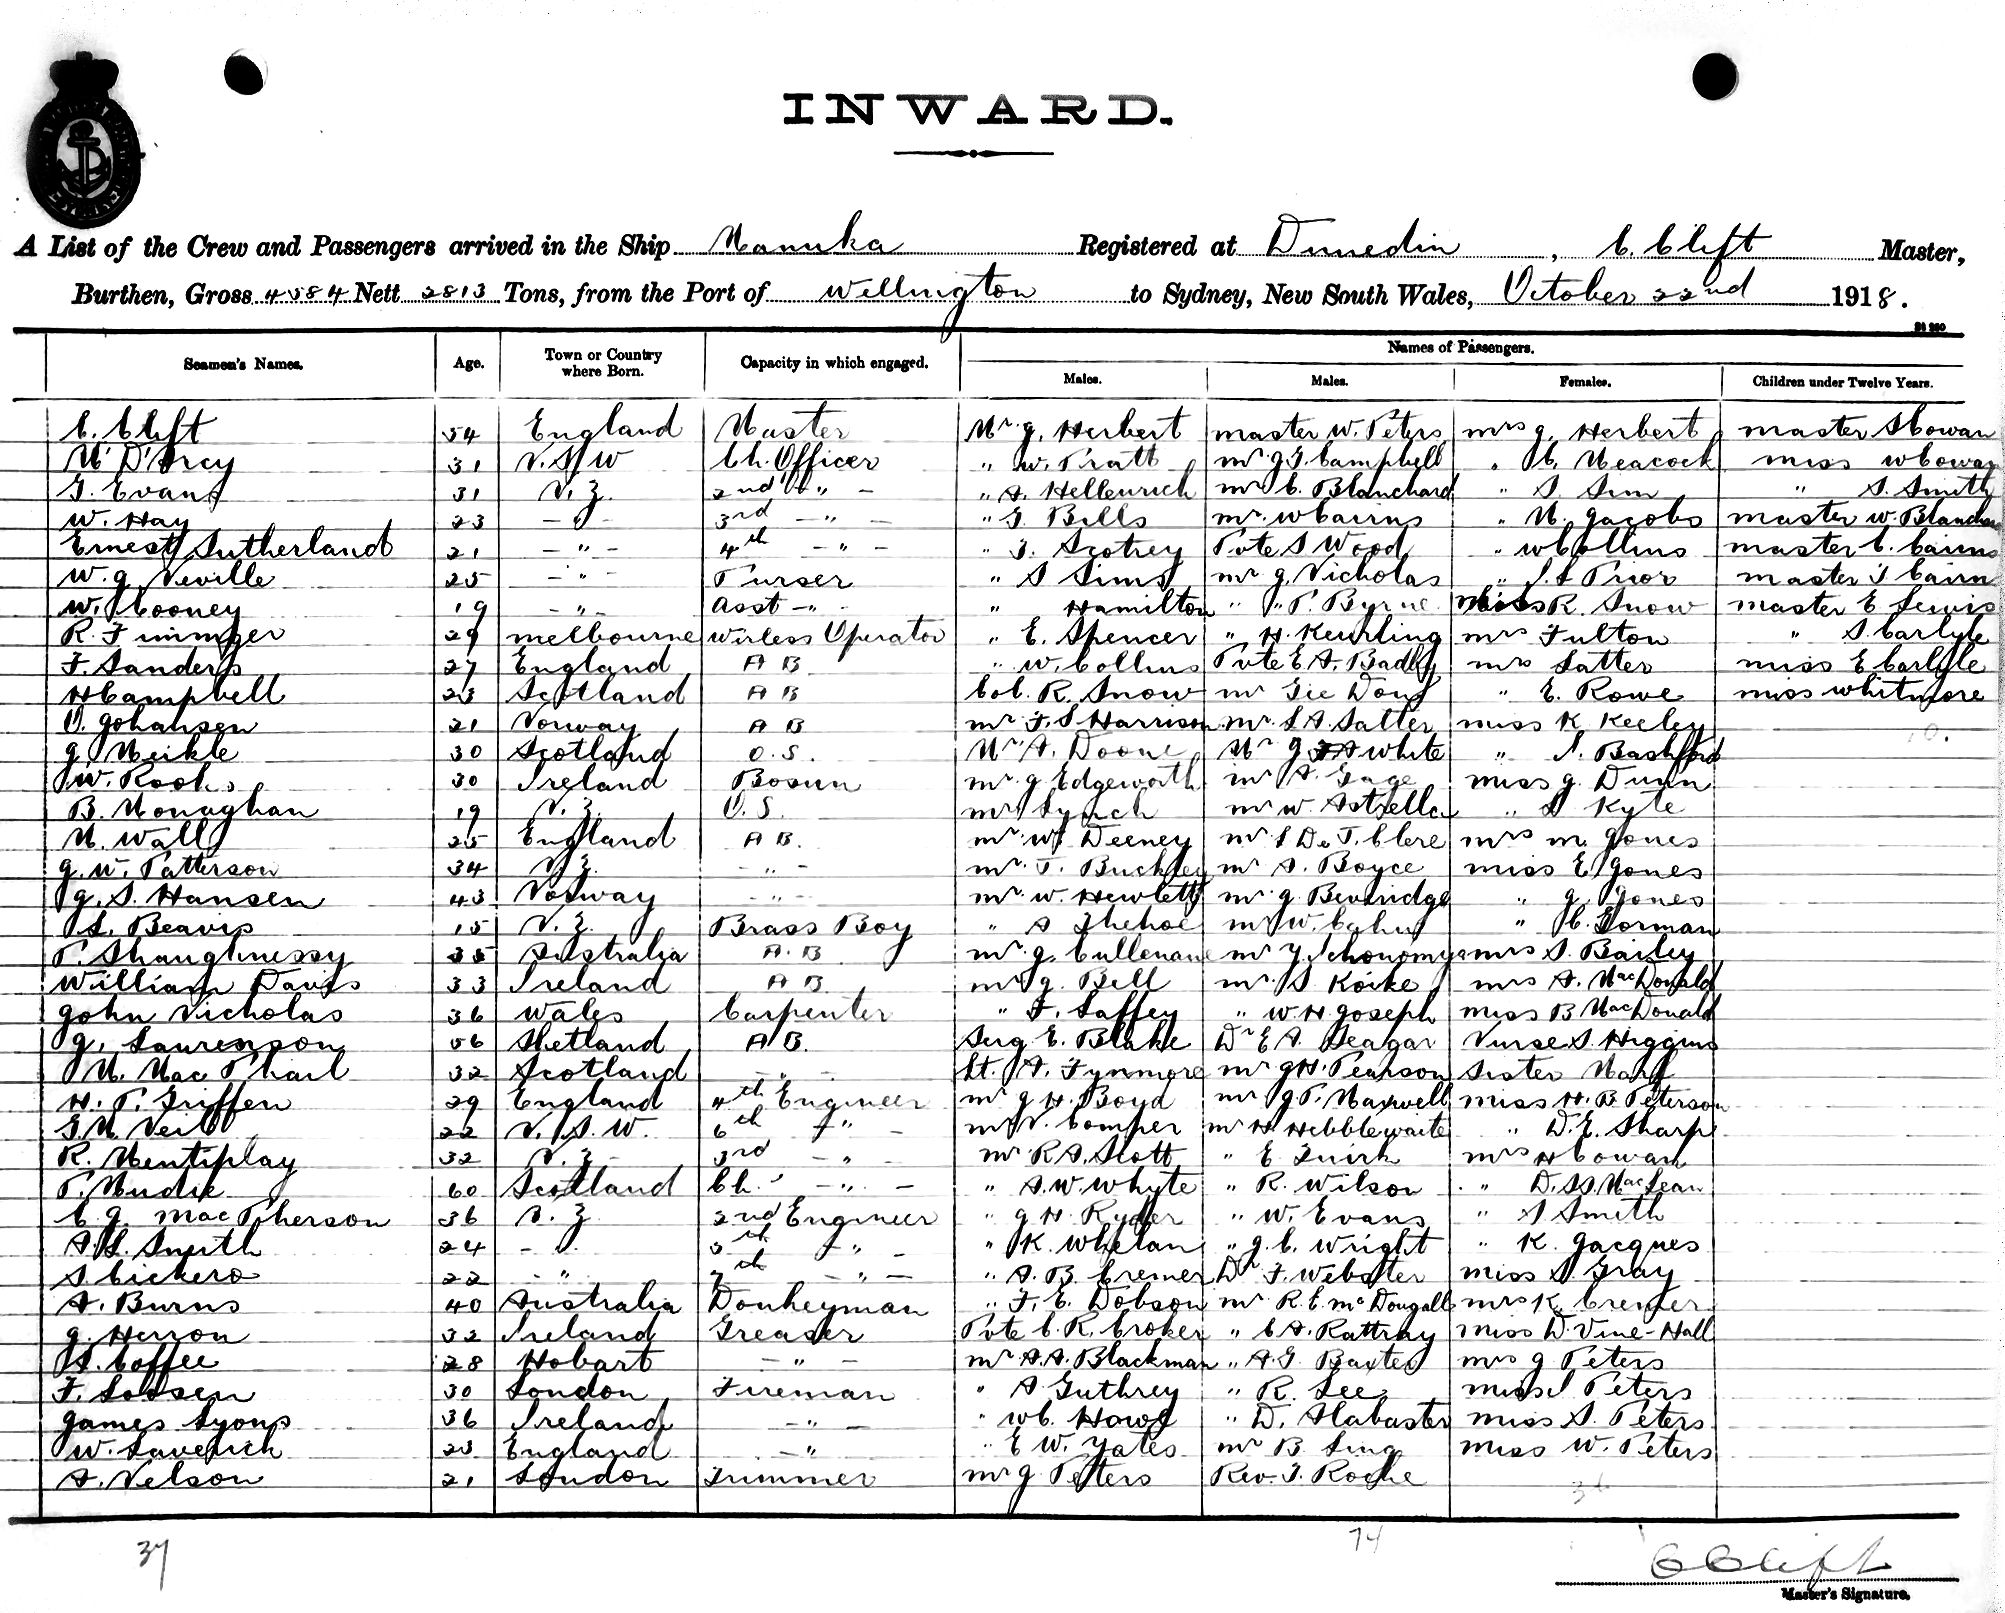 INWARD.
A List of the Crew and Passengers arrived in the Ship Manuka Registered at Dunedin, C. Clift Master,
Burthen, Gross 4584 Nett 2813 Tons, from the Port of Wellington to Sydney, New South Wales, October 22nd 1918.
Names of Passengers.
Seamen's Names. Age. Town or Country where Born. Capacity in which engaged. Males. Males. Females. Children under Twelve Years.
C. Clift 54 England Master Mr. J. Herbert master W. Peters mrs J. Herbert master S Cowan
M D'Arcy 31 N.S.W Ch. Officer " W. Pratt mr J. G. Campbell " C. Meacock miss W Cowan
G. Evans 31 N.Z. 2nd " - " A. Hellenrich mr C. Blanchard " S. Sim " S. Smith
W. Hay 23 - " - 3rd - " - " G. Bills mr. W Cairns " M. Jacobs master W. Blanchard
Ernest Sutherland 21 - " - 4th - " - " J. Scotney Pvte S Wood " W Collins master C. Cairns
W. J Neville 25 - " - Purser " S Sims mr J. Nicholas " J. S Prior master J Cairn
W. Cooney 19 - " - Asst - " " Hamilton " " P. Byrne Miss R. Snow master E Lewis
R. F 29 melbourne Wirless Operator " E. Spencer " H. Keurling mrs Fulton " S. Carlyle
F. Sanders 27 England A B " W. Collins Pvte E. A. Badly mrs Satter miss E Carlyle
H Campbell 23 Scotland A B Col. R. Snow mr Gee Dong " E. Rowe miss Whitmore
O. Johansen 21 Norway A B mr. F. S Harrison mr. S. A. Salter miss K Keeley
J. Meikle 30 Scotland O. S. Mr A. Doone Mr J White " S. Bashford
W. Rooks 30 Ireland Bosun mr. J Edgeworth mr A. Gage miss J. Dunn
B. Monaghan 19 N.Z. O. S. mr Lynch mr W. Astrella " S Kyte
M. Wall 25 England A B. mr. W Deeney mr S De J. Clere mrs m. Jones
J. W. Patterson 34 N.Z. - " - mr. T. Buckley mr A. Boyce miss E Jones
J. S. Hansen 43 Norway - " - mr. W. Hewlett mr J Beveridge " J Jones
L. Beavis 15 N.Z. Brass Boy " A Shehoe mr W. Cahn " C. Gorman
P. Shaughnessy 35 Australia A. B mr. J. Cullenane mr Y. Schonomya mrs S. Bailey
William Davis 33 Ireland A B mr J. Bell mr. S Koike mrs A. MacDonald
John Nicholas 36 Wales Carpenter " F. Laffey " W. H Joseph miss B MacDonald
J. Laurenson 56 Shetland A B. Serg E. Blake Dr E A. Seagar Nurse S. Higgins
M. MacPhail 32 Scotland - " - Lt. A. Fynmore mr J H. Pearson Sister Mary
H. P. Griffen 29 England 4th Engineer mr J H. Boyd mr J P. Maxwell miss H. B. Peterson
G. M Neil 22 N.S.W. 6th " - mr N. Comper mr H Hebblewaite " D. E. Sharp
R. Mentiplay 32 N.Z 3rd - " - mr R A. Scott " E Quirk mrs H Cowan
P. Mudie 60 Scotland Ch. - " - " A. W. Whyte " R. Wilson " D. MacLean
C J MacPherson 36 N.Z 2nd Engineer " J H. Ryder " W. Evans " S Smith
A. L. Smith 24 - " - 5th " - " K. Whelan " J. C. Wright " K. Jacques
S. Cickero 22 - " 7th - " - " A. B. Cremer Dr F. Webster miss S. Gray
A. Burns 40 Australia Donkeyman " F. E. Dobson mr R. E McDougall mrs K. Cremer
J. Herron 32 Ireland Greaser Pvte C. R. Croker " C A. Rattray miss D. Vine-Hall
A. Coffee 28 Hobart - " - mr A. A. Blackman " A. G. Baxter mrs J Peters
F. Sossen 30 London Fireman " A Guthrey " R. Lee miss Peters
James Lyons 36 Ireland - " - " W C. Howe " D. Alabaster miss S. Peters
W. Laverich 23 England - " " E W. Yates mr B Sing miss W. Peters
A. Nelson 21 London Trimmer mr J Peters Rev. J. Roche
37
74
C Clift
Master's Signature.